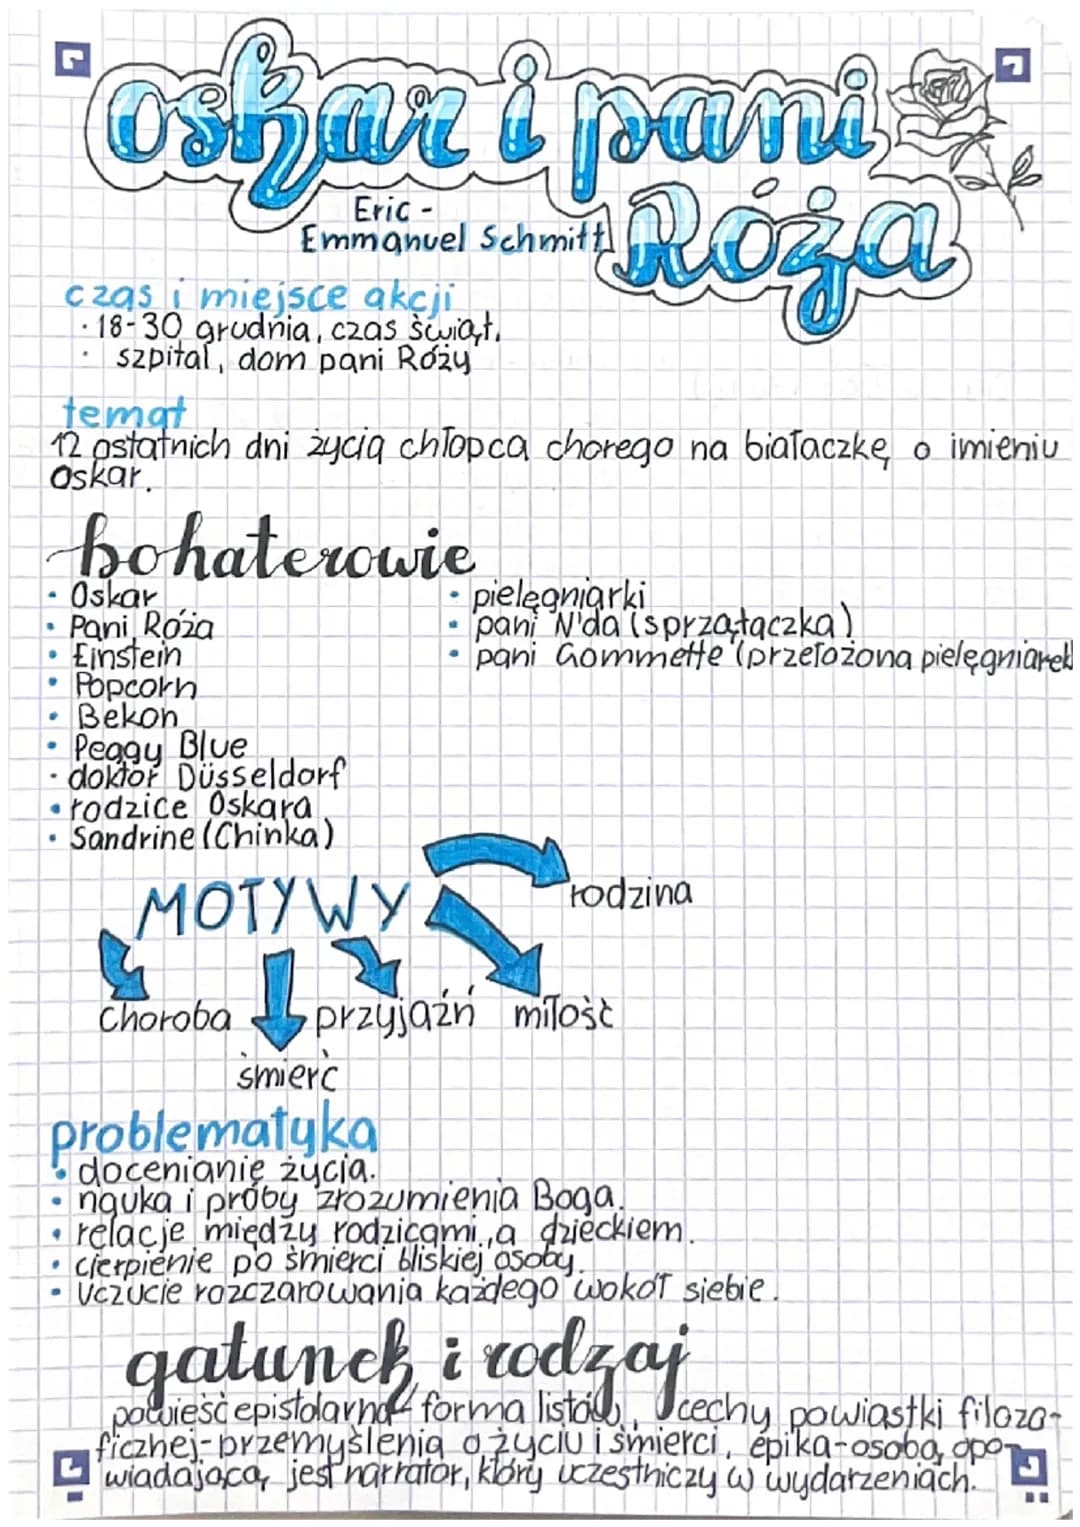 oskar i pani
Róża
Eric -
Emmanuel Schmitt
czas i miejsce akcji
· 18-30 grudnia, czas świąt.
· szpital, dom pani Róży
temat
12 ostatnich dni życia chłopca chorego na białaczkę o imieniu
Oskar.
bohaterowie
• Oskar
• Pani Róża
• Einstein
• Popcorn
• Bekon
• Peggy Blue
• doktor Düsseldorf
• rodzice Oskara
• Sandrine (Chinka)
• pielęgniarki
• pani N'da (sprzątaczka)
• pani Gommette (przełożona pielęgniarek
MOTYWY
rodzina
choroba
przyjaźń
miłość
śmierć
problematyka
• docenianie życia.
• nauka i próby zrozumienia Boga.
• relacje między rodzicami, a dzieckiem.
• cierpienie po śmierci bliskiej osoby.
• uczucie rozczarowania każdego wokół siebie.
gatunek i rodzaj
powieść epistolarna - forma listów, cechy powiastki filozo-
ficznej - przemyślenia o życiu i śmierci, epika - osobą opo-
wiadającą jest narrator, który uczestniczy w wydarzeniach.